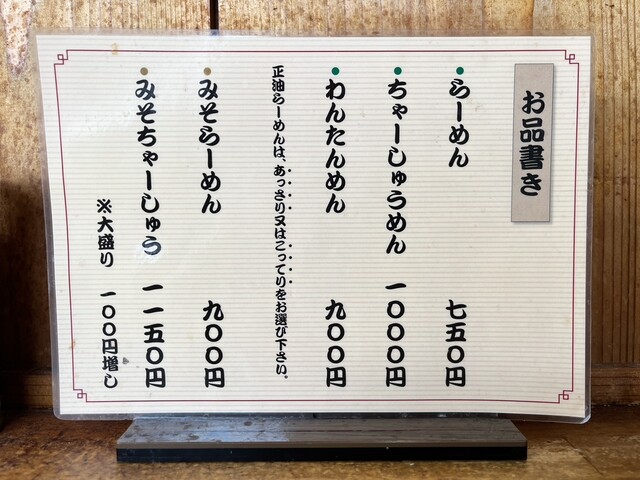 お品書き
●らーめん 七五〇円
●ちゃーしゅうめん 一〇〇〇円
●わんたんめん 九〇〇円
正油らーめんは、あっさり又はこってりをお選び下さい。
●みそらーめん 九〇〇円
●みそちゃーしゅう 一一五〇円
※大盛り 一〇〇円増し